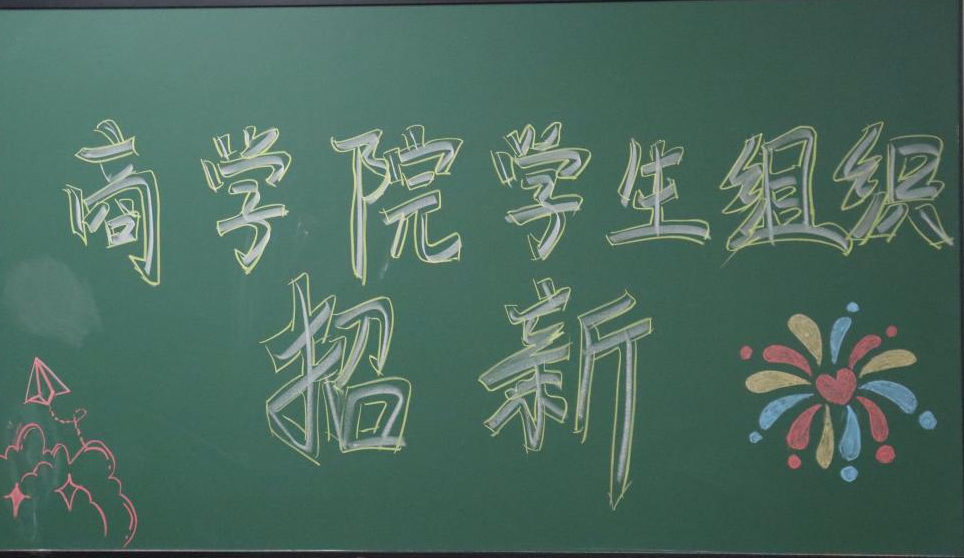 商学院学生组织
招新